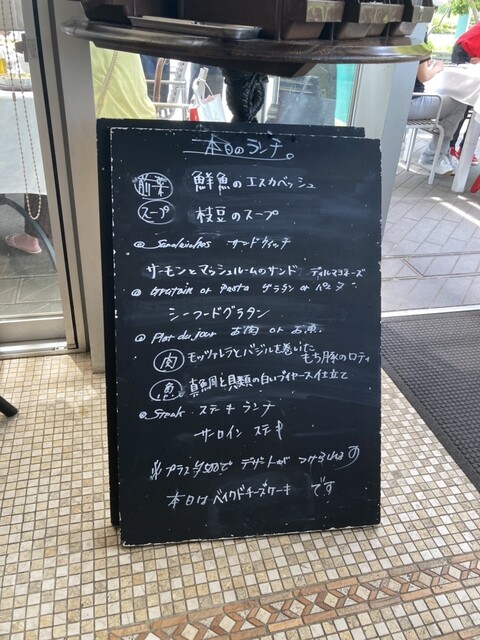 本日のランチ。
前菜 鮮魚のエスカベッシュ
スープ 枝豆のスープ
Sandwiches サンドウィッチ
サーモンとマッシュルームのサンド ディルマヨネーズ
Gratain or Pasta グラタン or パスタ
シーフードグラタン
Plat du jour お肉 or お魚
肉 モッツァレラとバジルを巻いた
もち豚のロティ
魚 真鯛と貝類の白いブイヤベース仕立て
Steak ステーキランチ
サーロインステーキ
※プラス¥500で デザートが つけられます
本日はベイクドチーズケーキ です